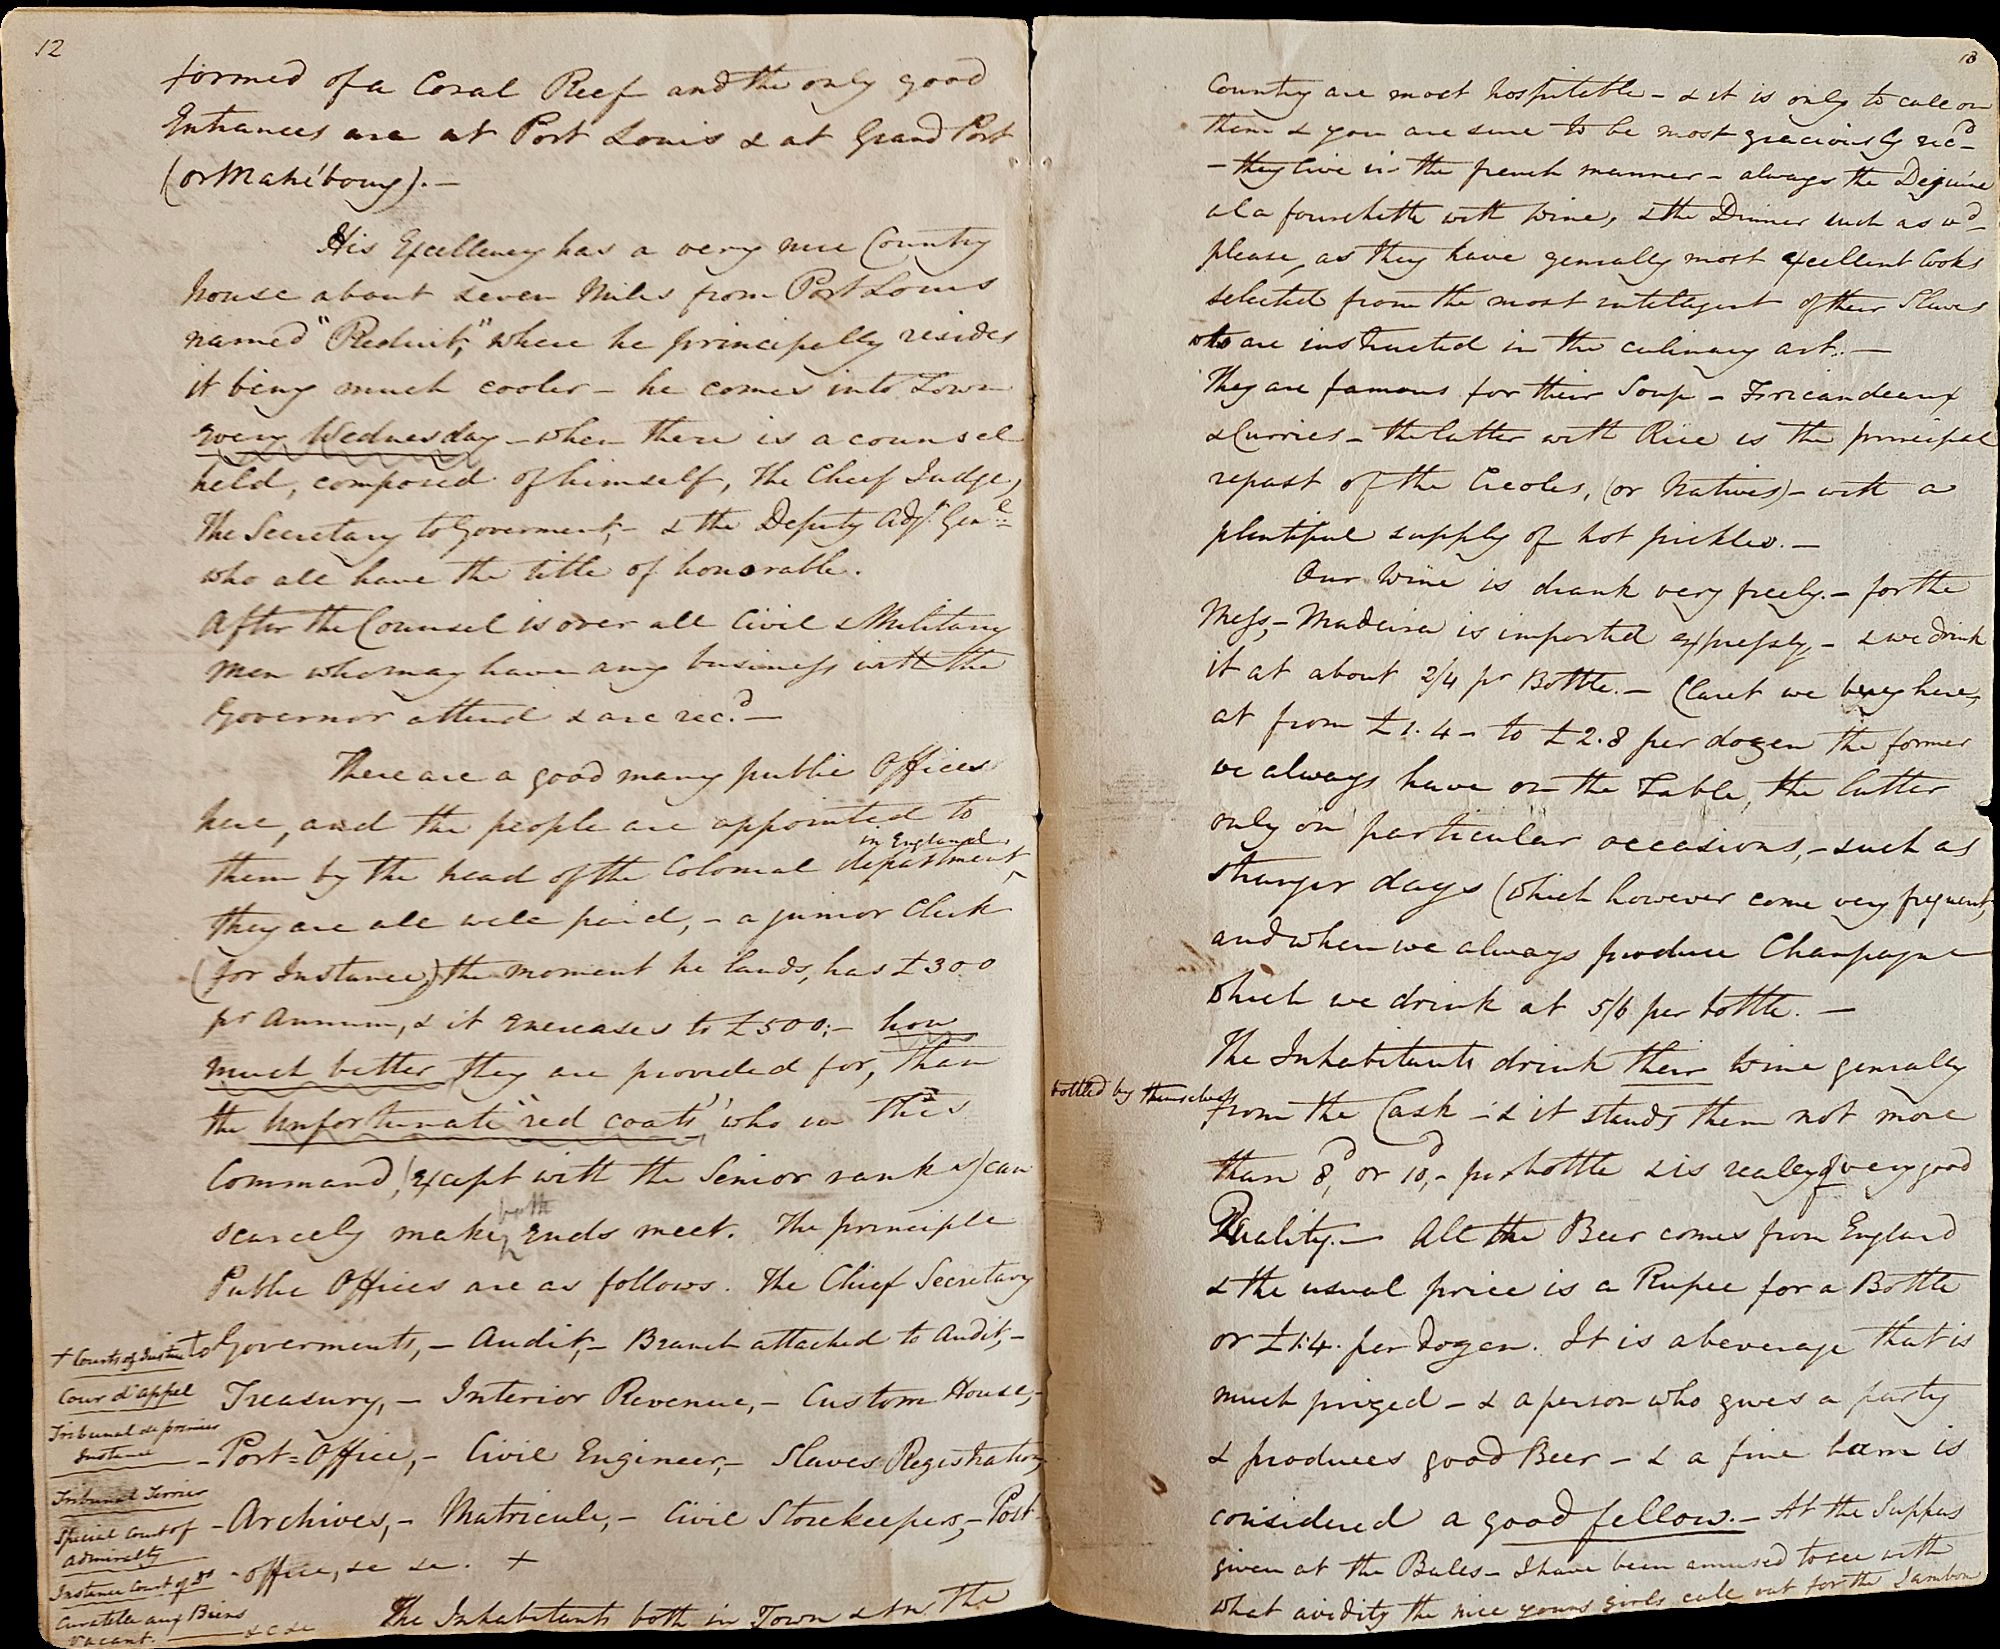 12
formed of a Coral Reef and the only good
Entrances are at Port Louis & at Grand Port
(or Mahé bourg). —
His Excellency has a very nice Country
house about seven Miles from Port Louis
named "Reduit," where he principally resides
it being much cooler — he comes into Town
every Wednesday — when there is a counsel
held, composed of himself, the Chief Judge,
The Secretary to Goverment, — & the Deputy Adjt. Genl.
who all have the title of honorable.
After the Counsel is over all Civil & Military
men who may have any business with the
Governor attend & are recd. —
There are a good many public Offices
here, and the people are appointed to
in England
them by the head of the Colonial department
they are all well paid, — a junior Clerk
(for Instance) the moment he lands, has £300
pr Annum, & it encreases to £500; — how
much better they are provided for, than
the unfortunate "red coats" who in this
Command, (except with the Senior ranks) can
both
scarcely make ends meet. The principle
Public Offices are as follows. The Chief Secretary
to Goverments, — Audit, — Branch attached to Audit, —
Treasury, — Interior Revenue, — Custom House, —
— Port = Office, — Civil Engineer, — Slaves Registration
— Archives, — Matricule, — Civil Storekeepers, — Post-
- office, &c &c. +
The Inhabitants both in Town & in the
+ Courts of Justice
Cour d'appel
Tribunal de premier
Instance
Tribunal Terrier
Special Court of
Admiralty
Instance Court of Do
Curatelle aux Biens
Vacant. — &c &c
13
Country are most hospitable — & it is only to call on
them & you are sure to be most graciously recd
— they live in the french manner — always the Dejeuné
a la fourchette with wine, & the Dinner such as wd
please, as they have generally most excellent Cooks
selected from the most intelligent of their Slaves
who are instructed in the culinary art. —
They are famous for their Soup — Fricandeaux
& Curries — the latter with Rice is the principal
repast of the Creoles, (or Natives) — with a
plentiful supply of hot pickles. —
Our Wine is drank very freely. — for the
Mess, — Madeira is imported expressly — & we drink
it at about 2/4 pr Bottle. — Claret we buy here,
at from £1.4 — to £2.8 per dozen the former
we always have on the Table, the latter
only on particular occasions, — such as
stranger days (which however come very frequent,
and when we always produce Champagne
which we drink at 5/6 per bottle. —
The Inhabitants drink their Wine generally
bottled by themselves
from the Cask — & it stands them not more
than 8d, or 10d, — pr bottle & is really of very good
Quality. — All the Beer comes from England
& the usual price is a Rupee for a Bottle
or £1.4. per Dozen. It is a beverage that is
much prized — & a person who gives a party
& produces good Beer — & a fine ham is
considered a good fellow. — At the Suppers
given at the Balls — I have been amused to see with
what avidity the nice young girls call out for the Jambon